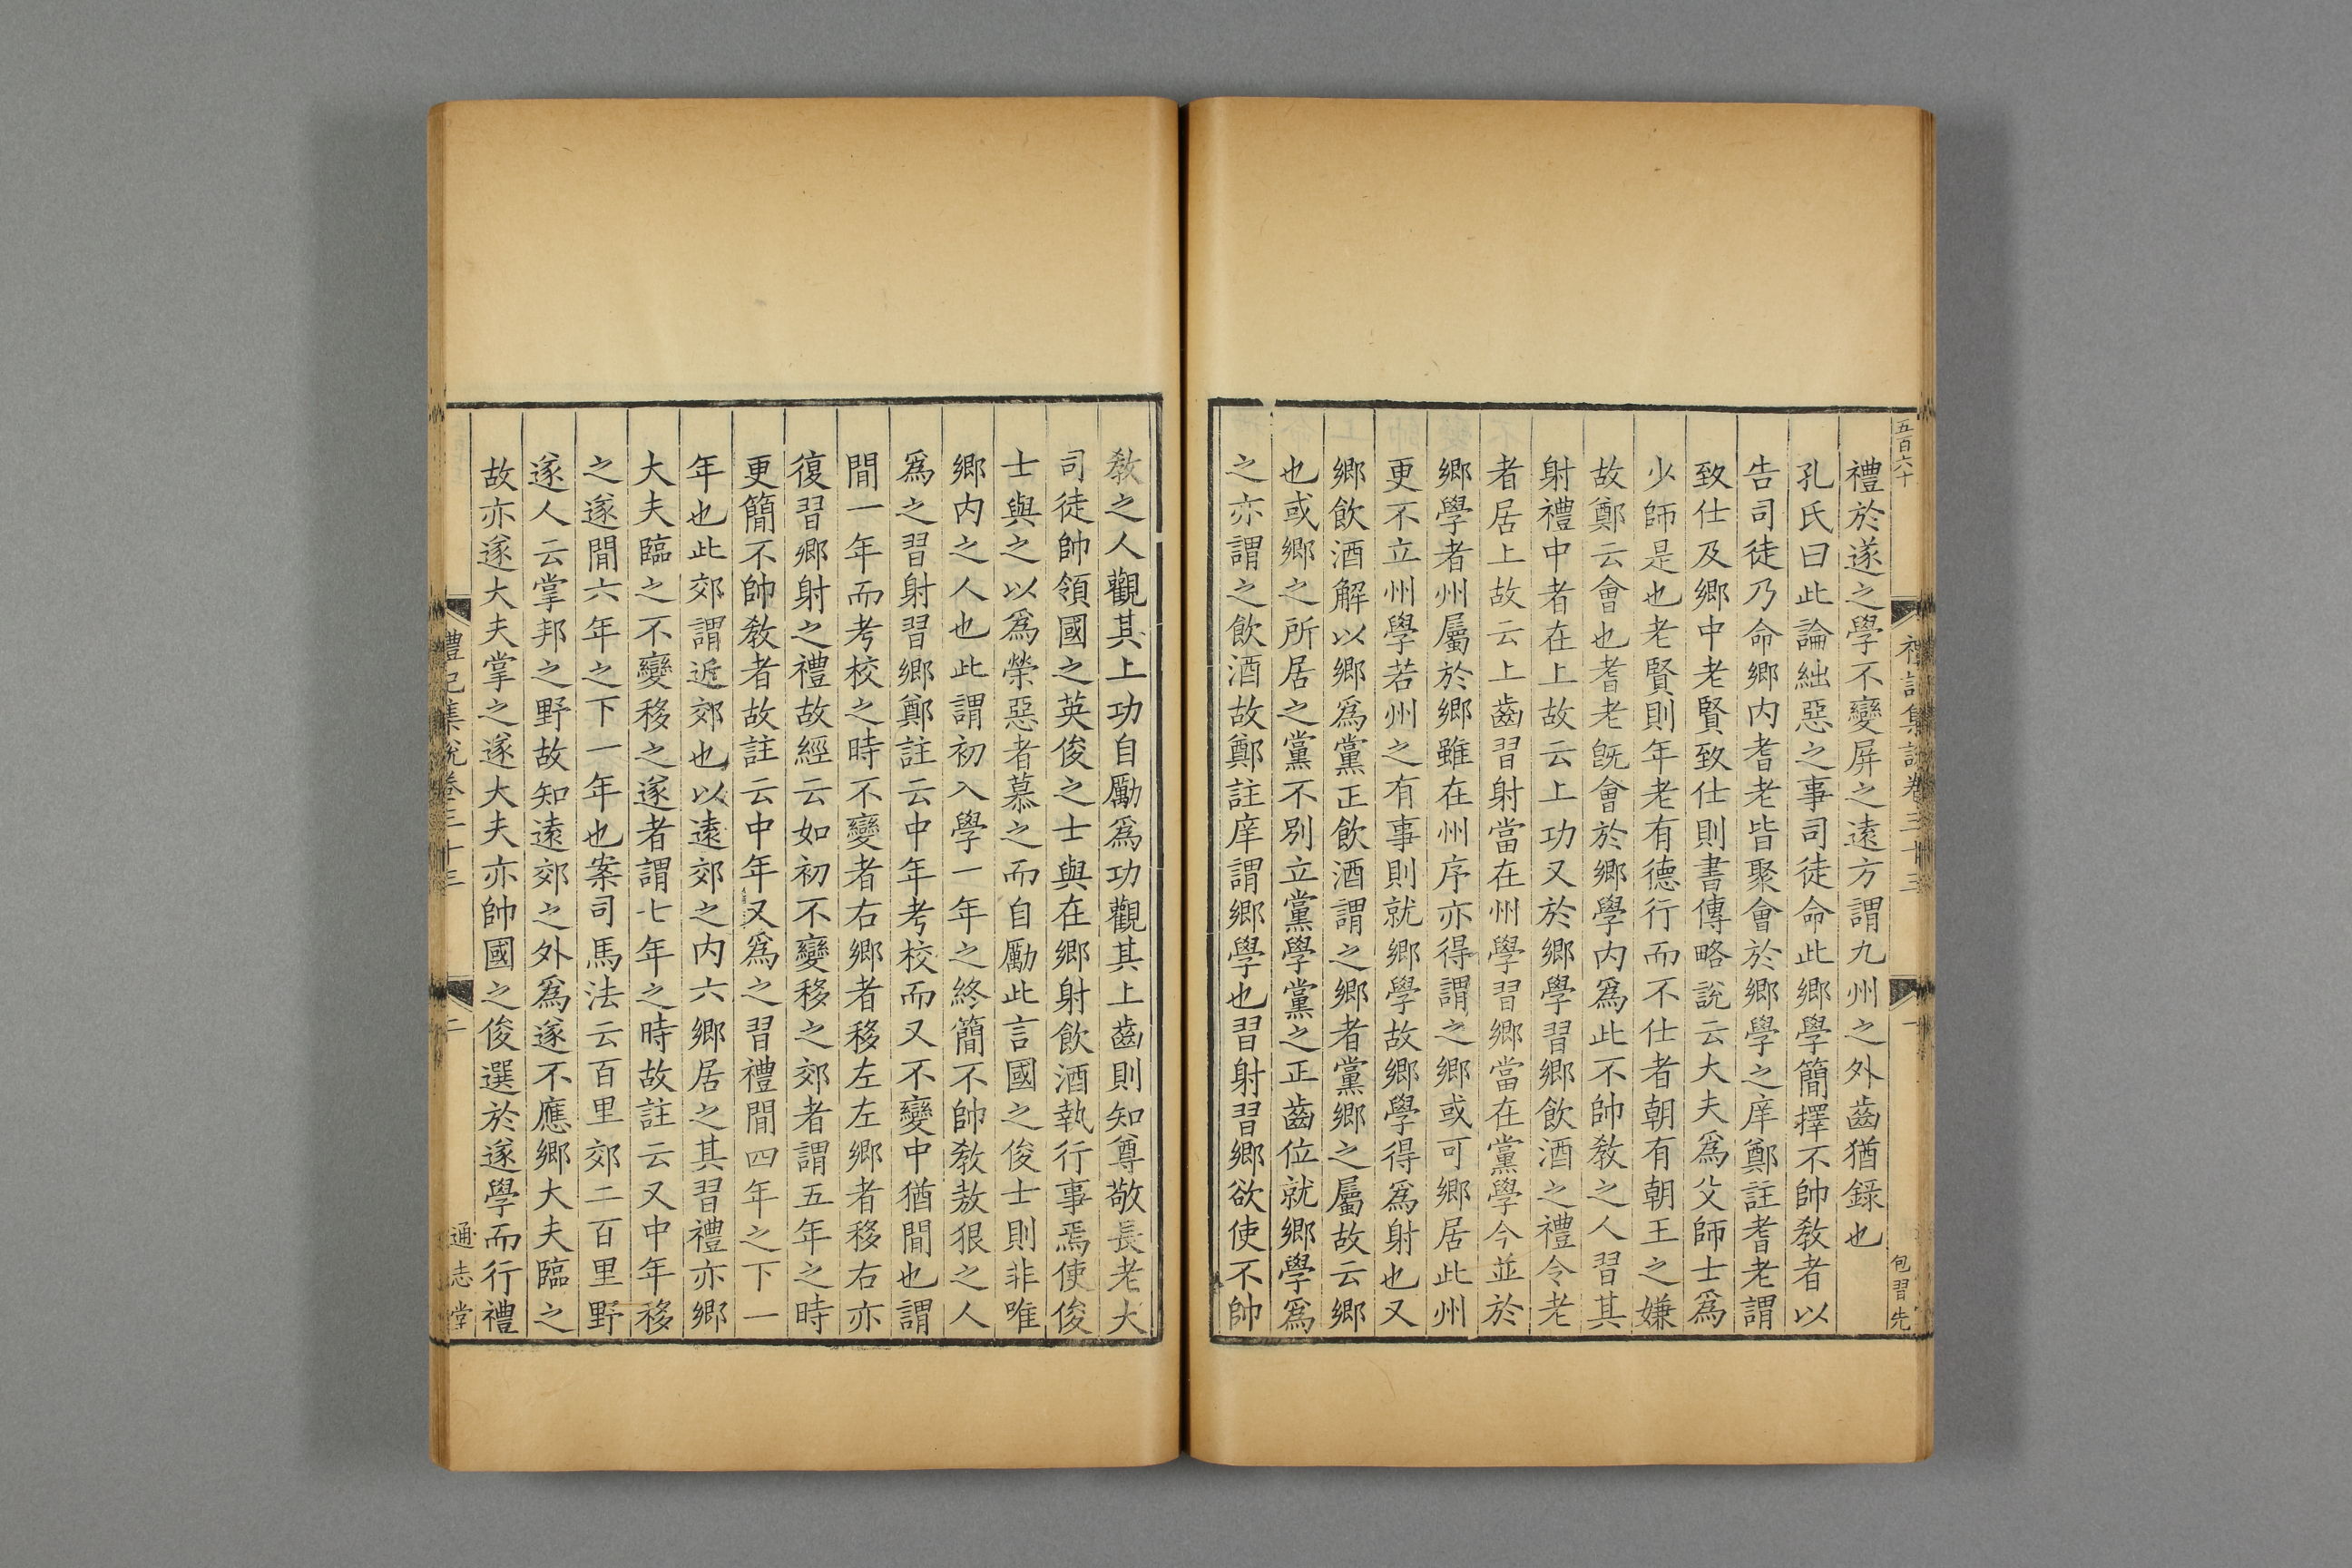 五百六十
禮記集說卷三十三
一
包習先
禮於遂之學不變屏之遠方謂九州之外齒猶錄也
孔氏曰此論絀惡之事司徒命此鄉學簡擇不帥敎者以
告司徒乃命鄉内耆老皆聚會於鄉學之庠鄭註耆老謂
致仕及鄉中老賢致仕則書傳略說云大夫爲父師士爲
少師是也老賢則年老有德行而不仕者朝有朝王之嫌
故鄭云會也耆老旣會於鄉學内爲此不帥敎之人習其
射禮中者在上故云上功又於鄉學習鄉飮酒之禮令老
者居上故云上齒習射當在州學習鄉當在黨學今並於
鄉學者州屬於鄉雖在州序亦得謂之鄉或可鄉居此州
更不立州學若州之有事則就鄉學故鄉學得爲射也又
鄉飮酒解以鄉爲黨正飮酒謂之鄉者黨鄉之屬故云鄉
也或鄉之所居之黨不別立黨學黨之正齒位就鄉學爲
之亦謂之飮酒故鄭註庠謂鄉學也習射習鄉欲使不帥
敎之人觀其上功自勵爲功觀其上齒則知尊敬長老大
司徒帥領國之英俊之士與在鄉射飮酒執行事焉使俊
士與之以爲榮惡者慕之而自勵此言國之俊士則非唯
鄉内之人也此謂初入學一年之終簡不帥敎敖狠之人
爲之習射習鄉鄭註云中年考校而又不變中猶閒也謂
閒一年而考校之時不變者右鄉者移左左鄉者移右亦
復習鄉射之禮故經云如初不變移之郊者謂五年之時
更簡不帥敎者故註云中年又爲之習禮閒四年之下一
年也此郊謂近郊也以遠郊之内六鄉居之其習禮亦鄉
大夫臨之不變移之遂者謂七年之時故註云又中年移
之遂閒六年之下一年也案司馬法云百里郊二百里野
遂人云掌邦之野故知遠郊之外爲遂不應鄉大夫臨之
故亦遂大夫掌之遂大夫亦帥國之俊選於遂學而行禮
禮記集說卷三十三
二
通志堂